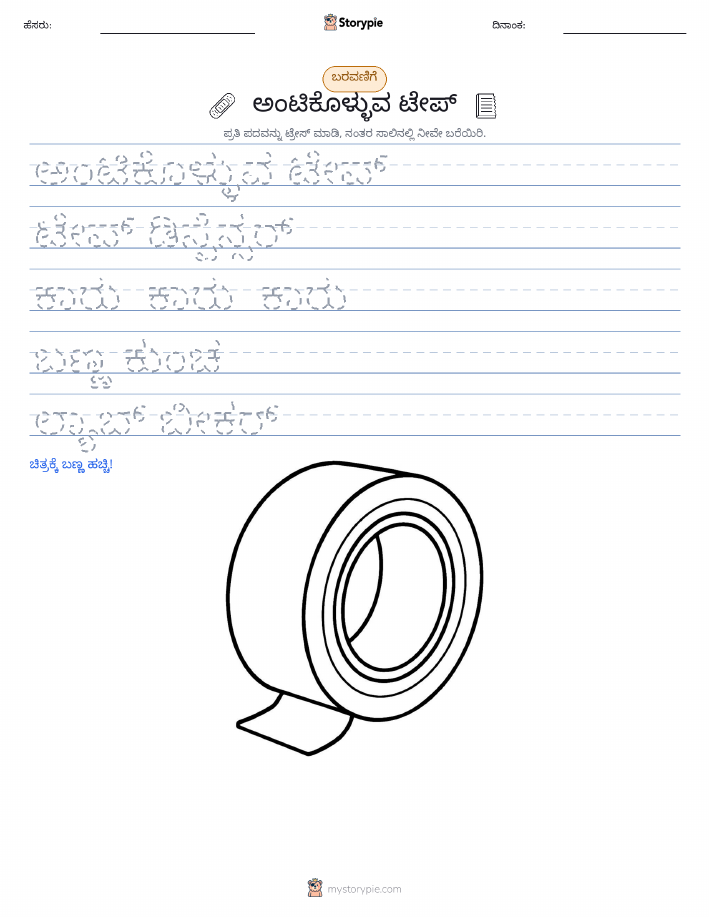 ಹೆಸರು:
Storypie
ದಿನಾಂಕ:
ಬರವಣಿಗೆ
ಅಂಟಿಕೊಳ್ಳುವ ಟೇಪ್
ಪ್ರತಿ ಪದವನ್ನು ಟ್ರೇಸ್ ಮಾಡಿ, ನಂತರ ಸಾಲಿನಲ್ಲಿ ನೀವೇ ಬರೆಯಿರಿ.
ಅಂಟಿಕೊಳ್ಳುವ ಟೇಪ್
ಟೇಪ್ ಡಿಸ್ಪೆನ್ಸರ್
ಕಾಯ ಕಾಯ ಕಾಯ
ಬಣ್ಣ ಕುಂಚ
ಲ್ಯಾಬ್ ಬೀಕರ್
ಚಿತ್ರಕ್ಕೆ ಬಣ್ಣ ಹಚ್ಚಿ!
mystorypie.com